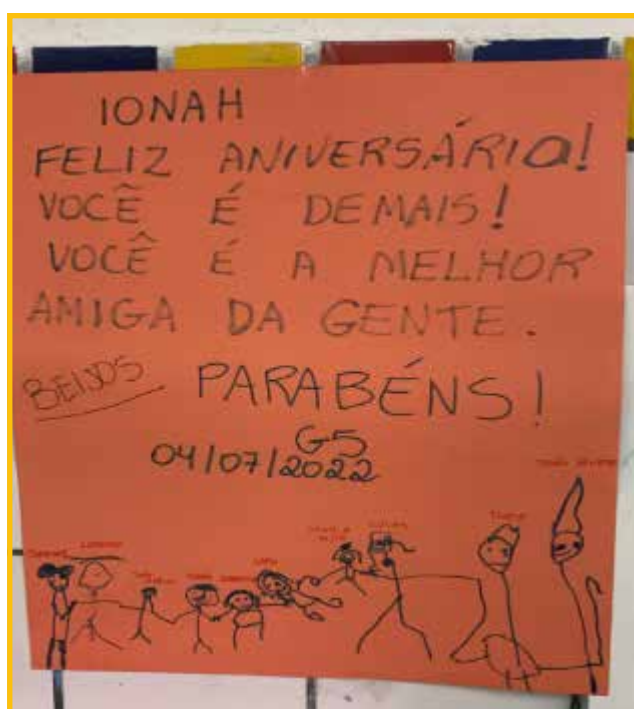 IONAH
FELIZ ANIVERSÁRIO!
VOCÊ É DEMAIS!
VOCÊ É A MELHOR
AMIGA DA GENTE.
BEIJOS PARABÉNS!
G5
04/07/2022